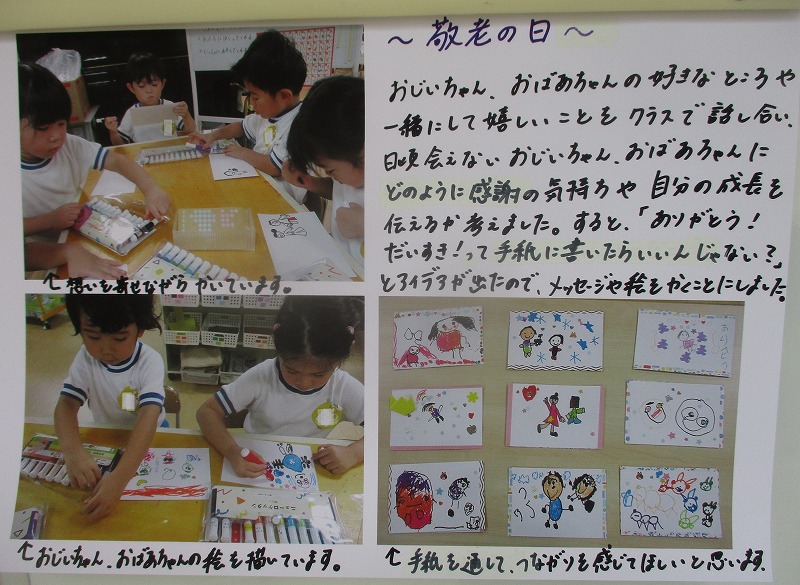 ～敬老の日～
おじいちゃん、おばあちゃんの好きなところや
一緒にして嬉しいことをクラスで話し合い、
日頃会えないおじいちゃん、おばあちゃんに
どのように感謝の気持ちや自分の成長を
伝えるか考えました。すると、「ありがとう!
だいすき!って手紙に書いたらいいんじゃない?」
とアイデアが出たので、メッセージや絵をかくことにしました。
↑想いを寄せながらかいています。
↑おじいちゃん、おばあちゃんの絵を描いています。
↑手紙を通して、つながりを感じてほしいと思います。